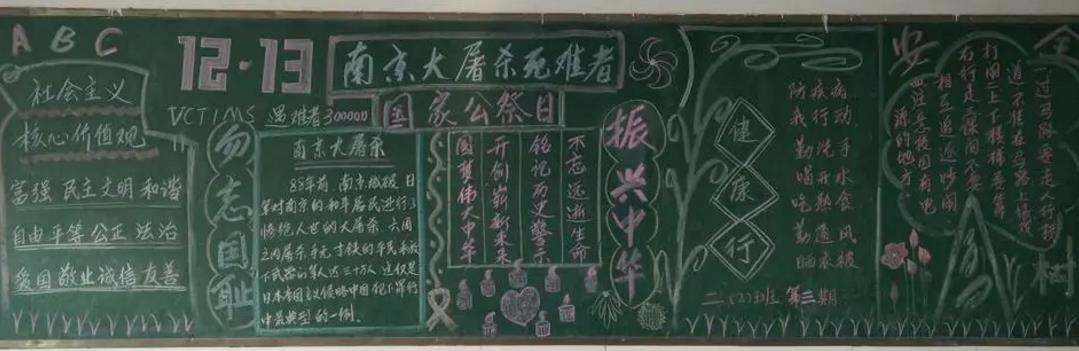 A B C
社会主义
核心价值观
富强 民主 文明 和谐
自由 平等 公正 法治
爱国 敬业 诚信 友善
12·13
南京大屠杀死难者
国家公祭日
VCTIMS 遇难者300000
勿忘国耻
南京大屠杀
88年前,南京城被日
军对南京的和平居民进行了
惨绝人世的大屠杀,六周
之内屠杀手无寸铁的平民和放
下武器的军人达三十万人,这仅是
日本帝国主义侵略中国犯下罪行
中最典型的一例。
不忘远逝生命
铭记历史警示
开创崭新未来
圆梦伟大中华
振兴中华
健康行
防疾病
我行动
勤洗手
喝开水
吃熟食
勤通风
晒衣被
二(2)班 第三期
安全树
过马路要走人行横
道不准在马路上嬉戏
打闹上下楼梯要靠
右行走课间不要
相互追逐吵闹
有电
源的地方